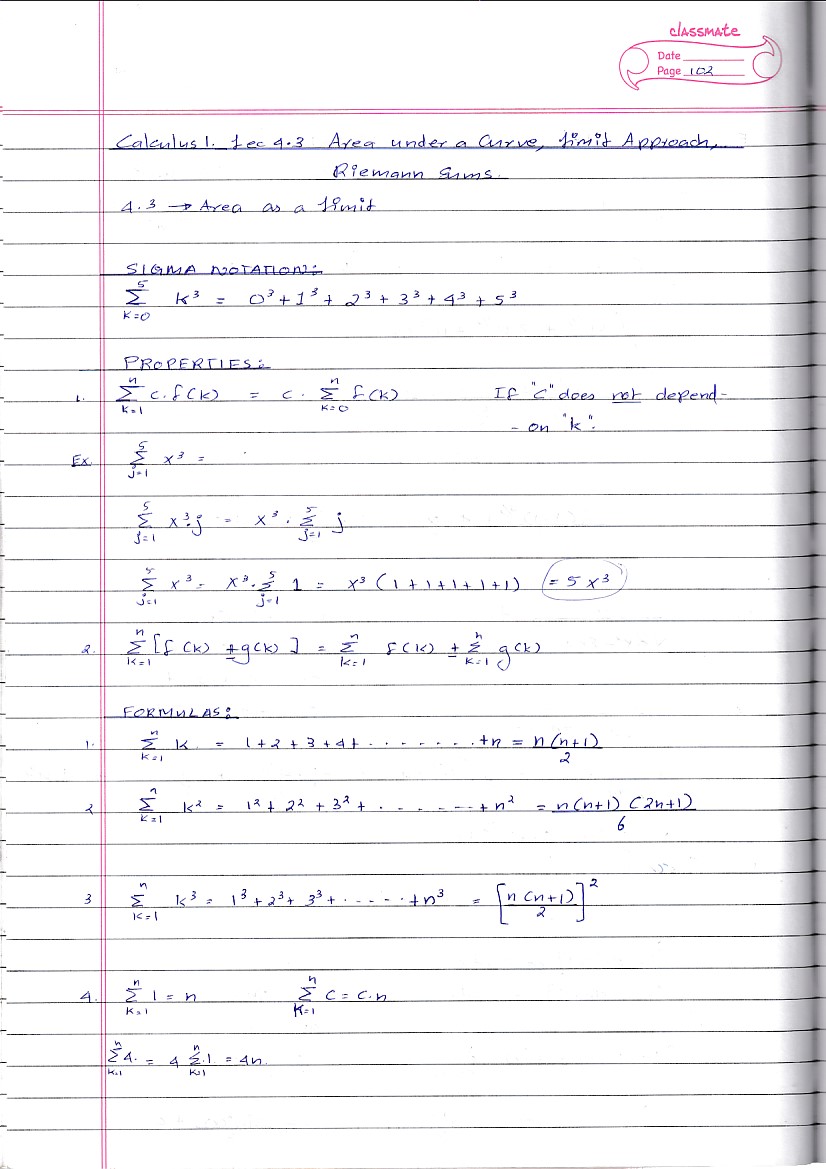 classmate
Date
Page 102
Calculus 1. Lec 4.3 Area under a Curve, Limit Approach,
Riemann Sums.
4.3 → Area as a limit
SIGMA NOTATION:-
5 Σ k=0 k³ = 0³ + 1³ + 2³ + 3³ + 4³ + 5³
PROPERTIES:-
1. n Σ k=1 c.f(k) = c. n Σ k=0 f(k) If "c" does not depend-
- on "k".
Ex. 5 Σ j=1 x³ =
5 Σ j=1 x³.j = x³. 5 Σ j=1 j
5 Σ j=1 x³ = x³. 5 Σ j=1 1 = x³ (1+1+1+1+1) = 5x³
2. n Σ k=1 [f(k) ± g(k)] = n Σ k=1 f(k) ± n Σ k=1 g(k)
FORMULAS:-
1. n Σ k=1 k = 1+2+3+4+.......+n = n(n+1)/2
2 n Σ k=1 k² = 1² + 2² + 3² + ....... + n² = n(n+1)(2n+1)/6
3 n Σ k=1 k³ = 1³ + 2³ + 3³ + ..... + n³ = [n(n+1)/2]²
4. n Σ k=1 1 = n n Σ k=1 c = c.n
n Σ k=1 4. = 4 n Σ k=1 .1 = 4n.